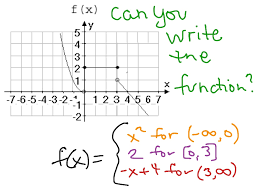 f(x)
can you
write
the
function?
y
5
4
3
2
1
x
-7 -6 -5 -4 -3 -2 -1 0 1 2 3 4 5 6 7
-1
-2
f(x) = { x² for (-∞,0)
2 for [0,3]
-x+4 for (3,∞)